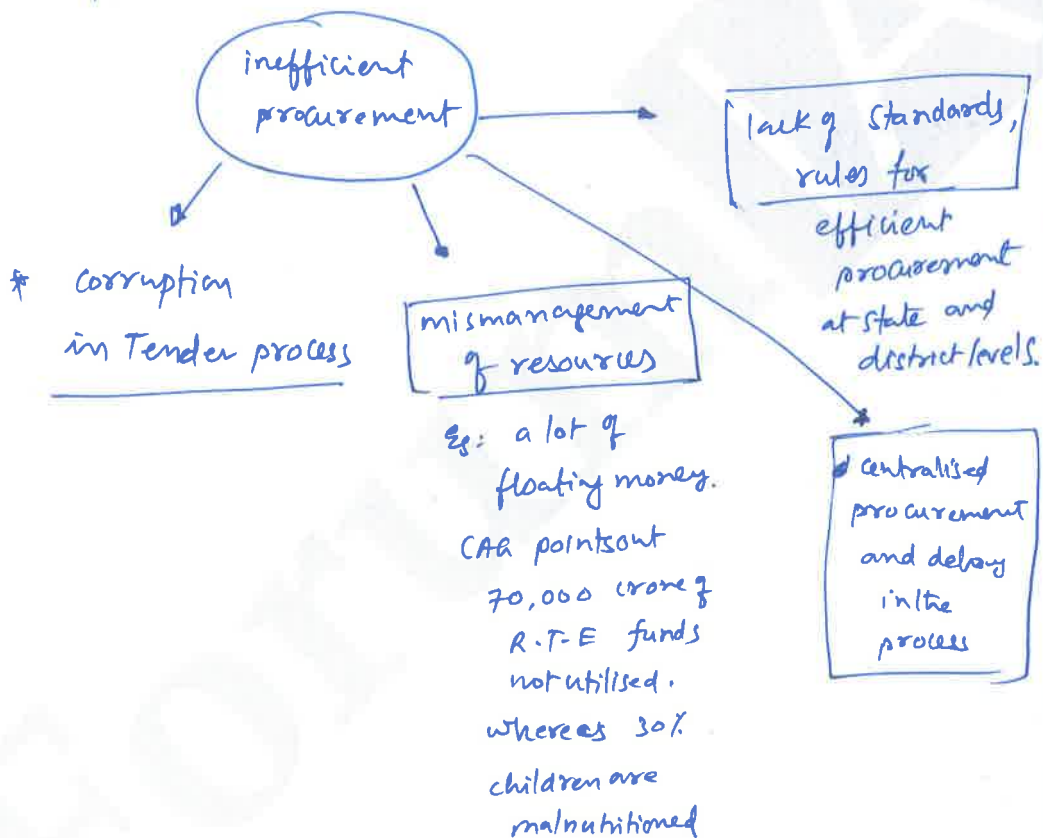 inefficient
procurement
lack of Standards,
rules for
efficient
procurement
at state and
district levels.
* corruption
in Tender process
mismanagement
of resources
Eg: a lot of
floating money.
CAG points out
70,000 crore of
R.T.E funds
not utilised.
whereas 30%
children are
malnutritioned
centralised
procurement
and delay
in the
process